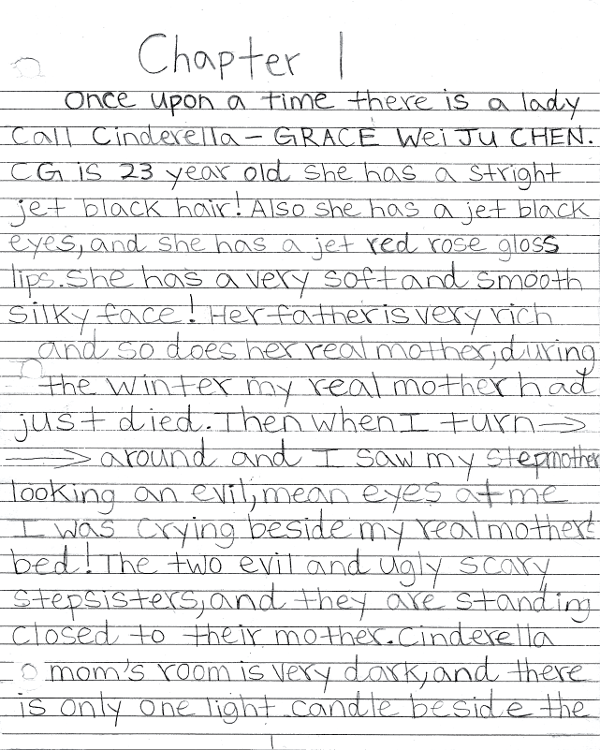 Chapter 1
Once upon a time there is a lady
Call Cinderella - GRACE Wei JU CHEN.
CG is 23 year old she has a stright
jet black hair! Also she has a jet black
eyes, and she has a jet red rose gloss
lips. She has a very soft and smooth
silky face! Her father is very rich
and so does her real mother, during
the winter my real mother had
just died. Then when I turn →
→ around and I saw my stepmother
looking an evil, mean eyes at me
I was crying beside my real mother's
bed! The two evil and ugly scary
stepsisters, and they are standing
closed to their mother. Cinderella
mom's room is very dark, and there
is only one light candle beside the
1